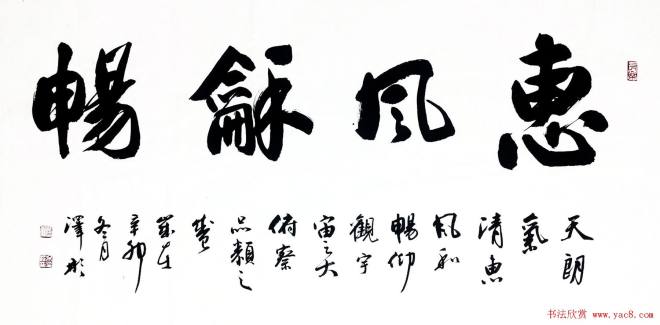 惠风龢暢
天朗
氣
清惠
风和
暢仰
觀宇
宙之大
俯察
品類之
盛
歲在
辛卯
冬月
澤
书法欣赏 www.yac8.com